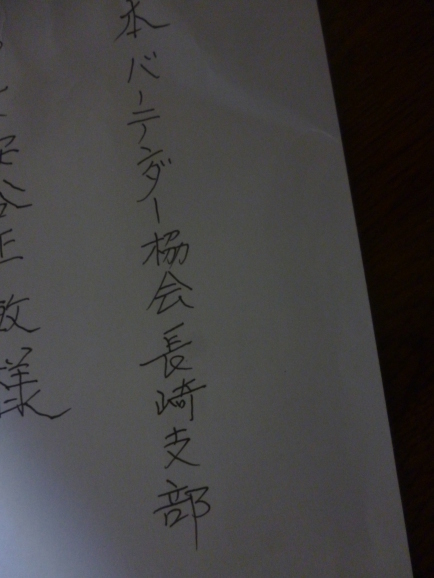 本バーテンダー協会長崎支部
谷正敏様